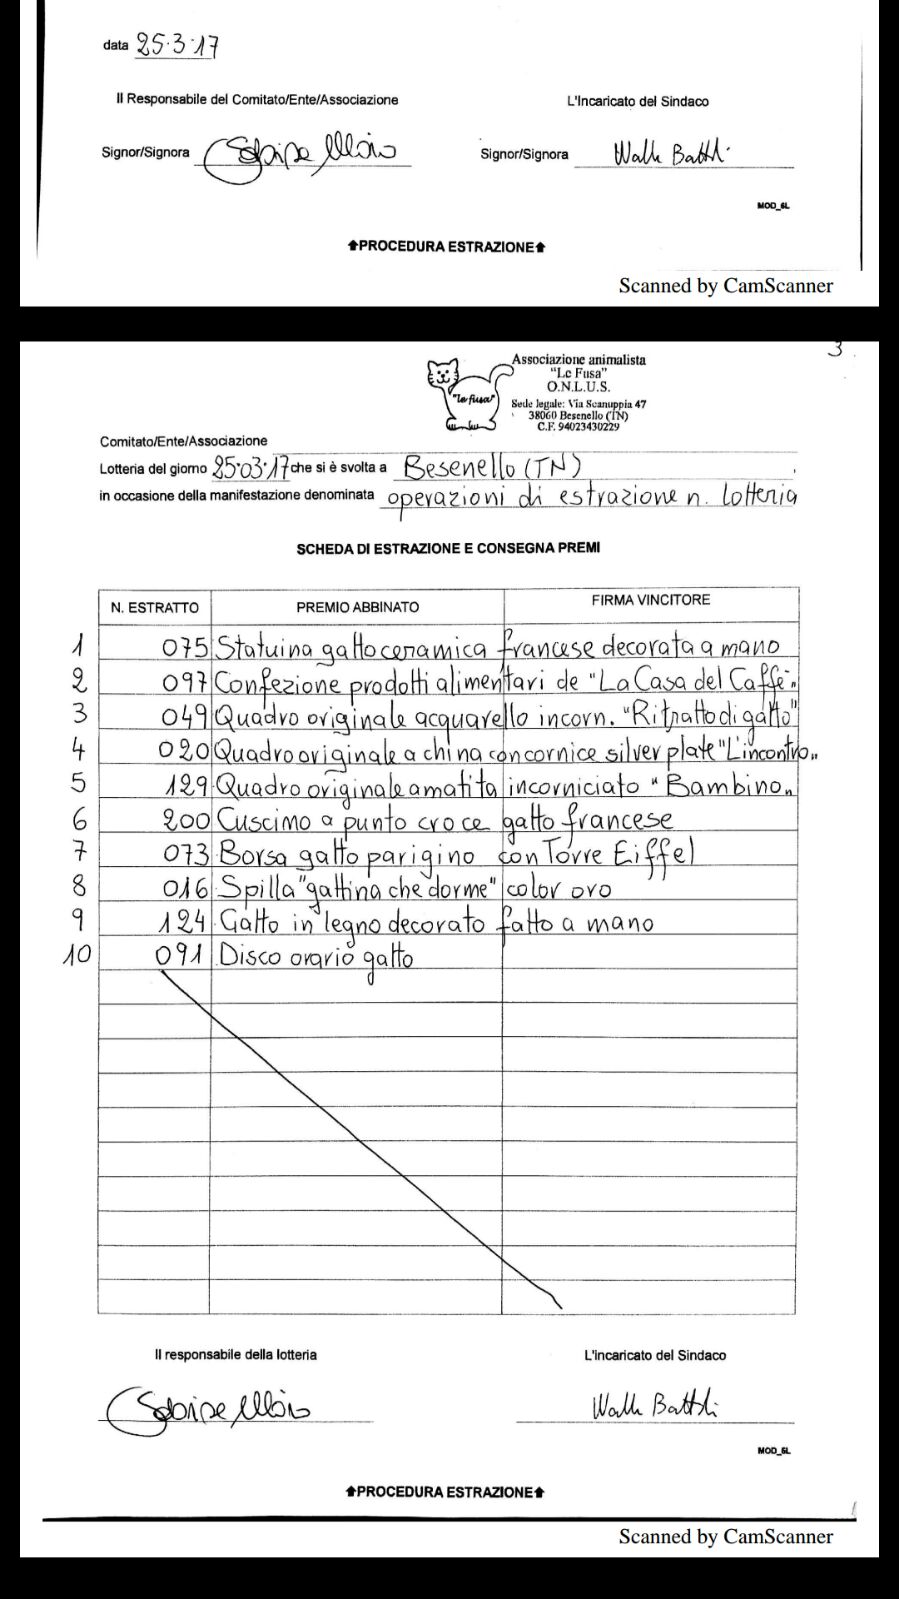 data 25·3·17
Il Responsabile del Comitato/Ente/Associazione L'Incaricato del Sindaco
Signor/Signora Signor/Signora
MOD_6L
⬆PROCEDURA ESTRAZIONE⬆
Scanned by CamScanner
3
Associazione animalista
"Le Fusa"
O.N.L.U.S.
"le fusa"
Sede legale: Via Scanuppia 47
38060 Besenello (TN)
C.F. 94023430229
Comitato/Ente/Associazione
Lotteria del giorno 25·03·17 che si è svolta a Besenello (TN)
in occasione della manifestazione denominata operazioni di estrazione n. lotteria
SCHEDA DI ESTRAZIONE E CONSEGNA PREMI
N. ESTRATTO PREMIO ABBINATO FIRMA VINCITORE
1 075 Statuina gatto ceramica francese decorata a mano
2 097 Confezione prodotti alimentari de "La Casa del Caffè"
3 049 Quadro originale acquarello incorn. "Ritratto di gatto"
4 020 Quadro originale a china con cornice silver plate "L'incontro"
5 129 Quadro originale a matita incorniciato "Bambino"
6 200 Cuscino a punto croce gatto francese
7 073 Borsa gatto parigino con Torre Eiffel
8 016 Spilla "gattina che dorme" color oro
9 124 Gatto in legno decorato fatto a mano
10 091 Disco orario gatto
Il responsabile della lotteria L'incaricato del Sindaco
MOD_6L
⬆PROCEDURA ESTRAZIONE⬆
Scanned by CamScanner